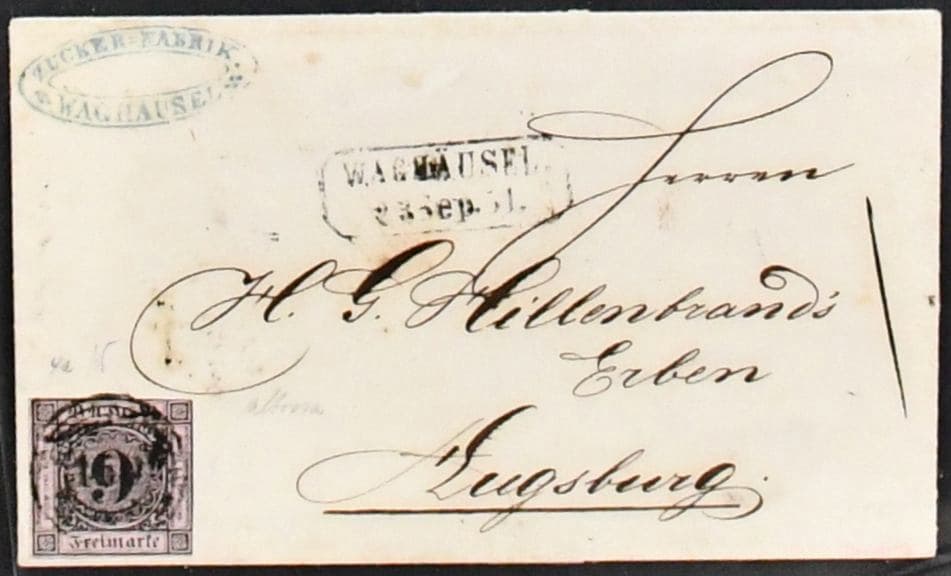 ZUCKER-FABRIK
WAGHÄUSEL
WAGHÄUSEL.
23 Sep. 51.
Herren
H. G. Hillenbrand's
Erben
Augsburg.
BADEN
9
Freimarke